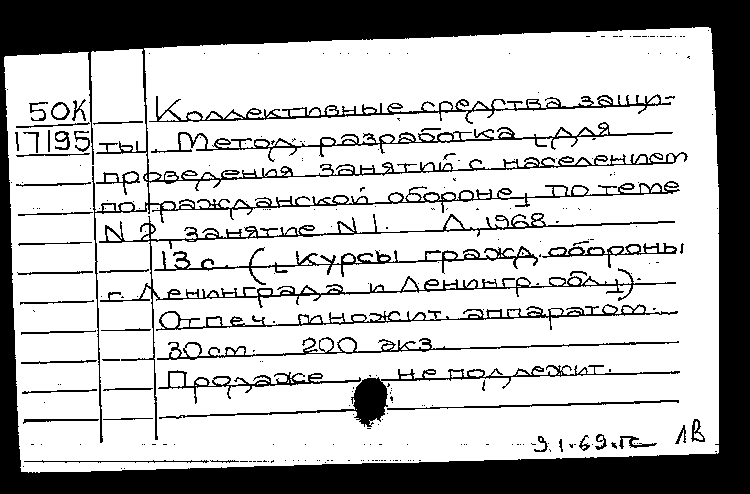 50К Коллективные средства защи-
17195 ты. Метод. разработка [для
проведения занятий с населением
по гражданской обороне] по теме
N 2, занятие N 1. Л., 1968.
13 с. ([Курсы гражд. обороны
г. Ленинграда и Ленингр. обл.])
Отпеч. множит. аппаратом.
30 см. 200 экз.
Продаже не подлежит.
9.1.69. 1В